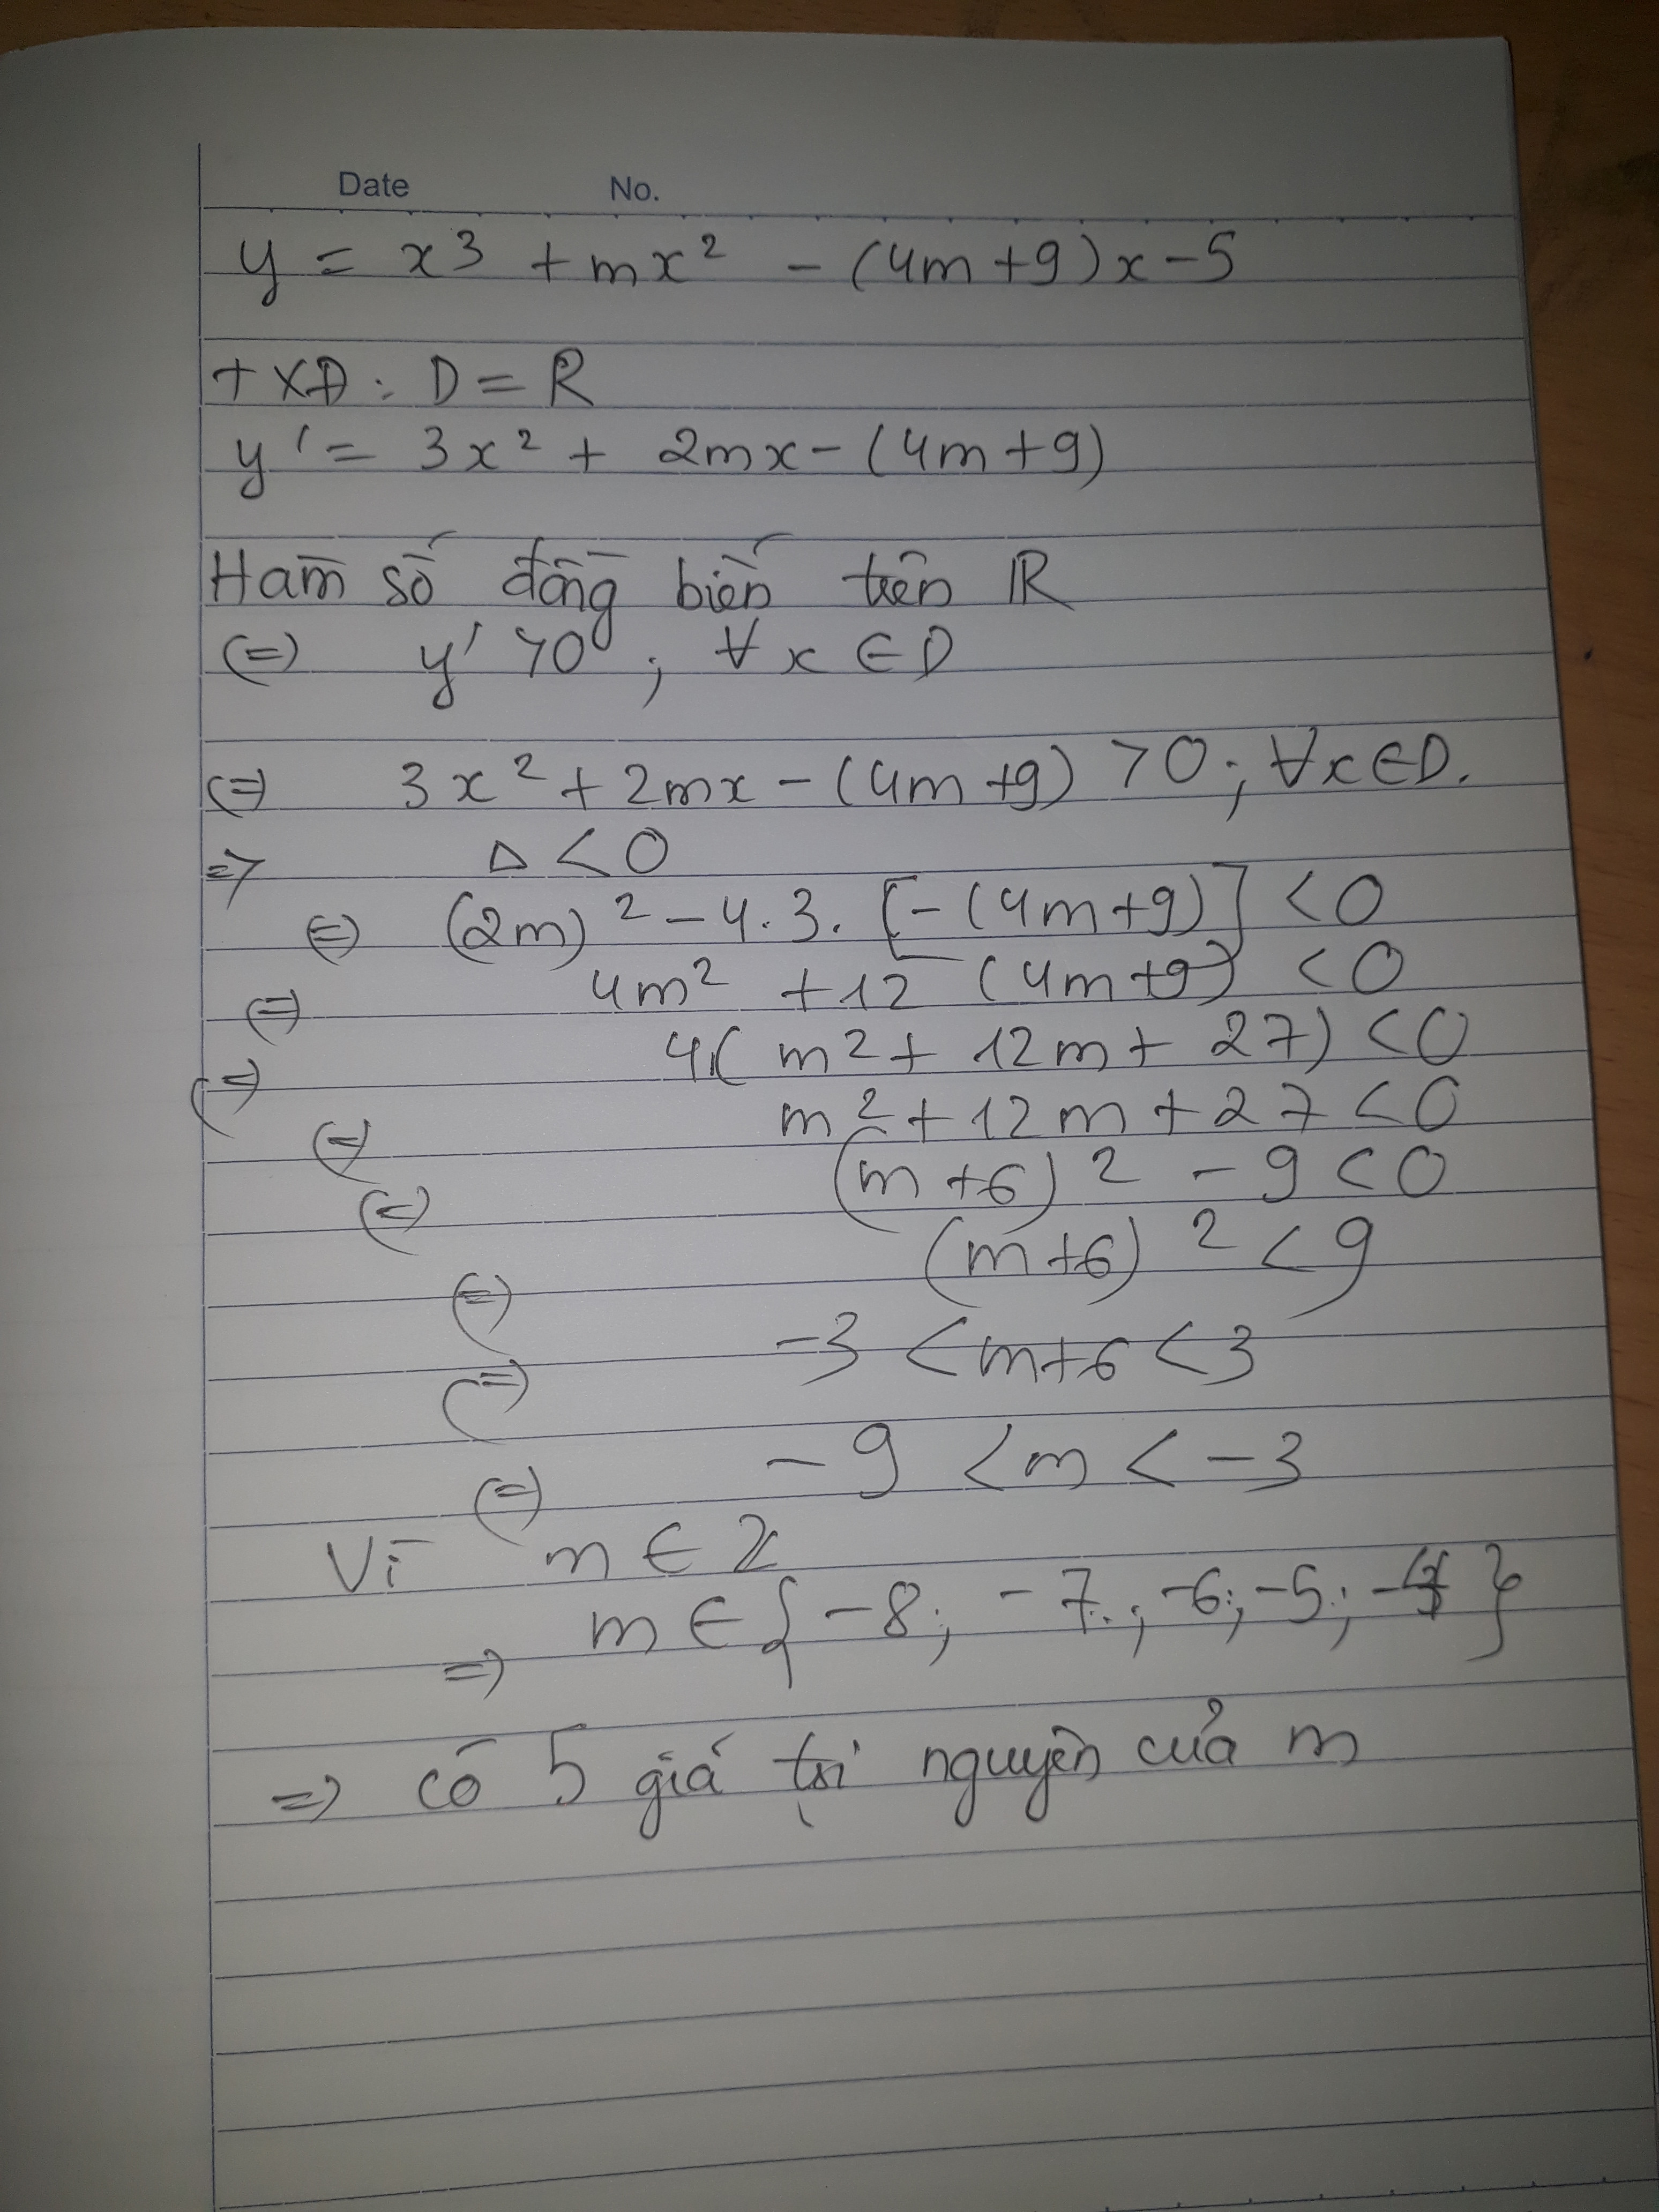 Date No.
y = x³ + mx² - (4m+9)x-5
TXĐ: D = R
y' = 3x² + 2mx - (4m+9)
Hàm số đồng biến trên R
(=) y' > 0 ; ∀x ∈ D
(=) 3x² + 2mx - (4m+9) > 0 ; ∀x ∈ D.
=> Δ < 0
(=) (2m)² - 4.3. [-(4m+9)] < 0
(=) 4m² + 12 (4m+9) < 0
(=) 4.(m² + 12m + 27) < 0
(=) m² + 12m + 27 < 0
(=) (m+6)² - 9 < 0
(=) (m+6)² < 9
(=) -3 < m+6 < 3
(=) -9 < m < -3
Vì m ∈ Z
=> m ∈ {-8; -7; -6; -5; -4}
=> có 5 giá trị nguyên của m